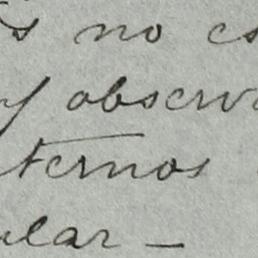 es no es
y observa
ternos
ular —